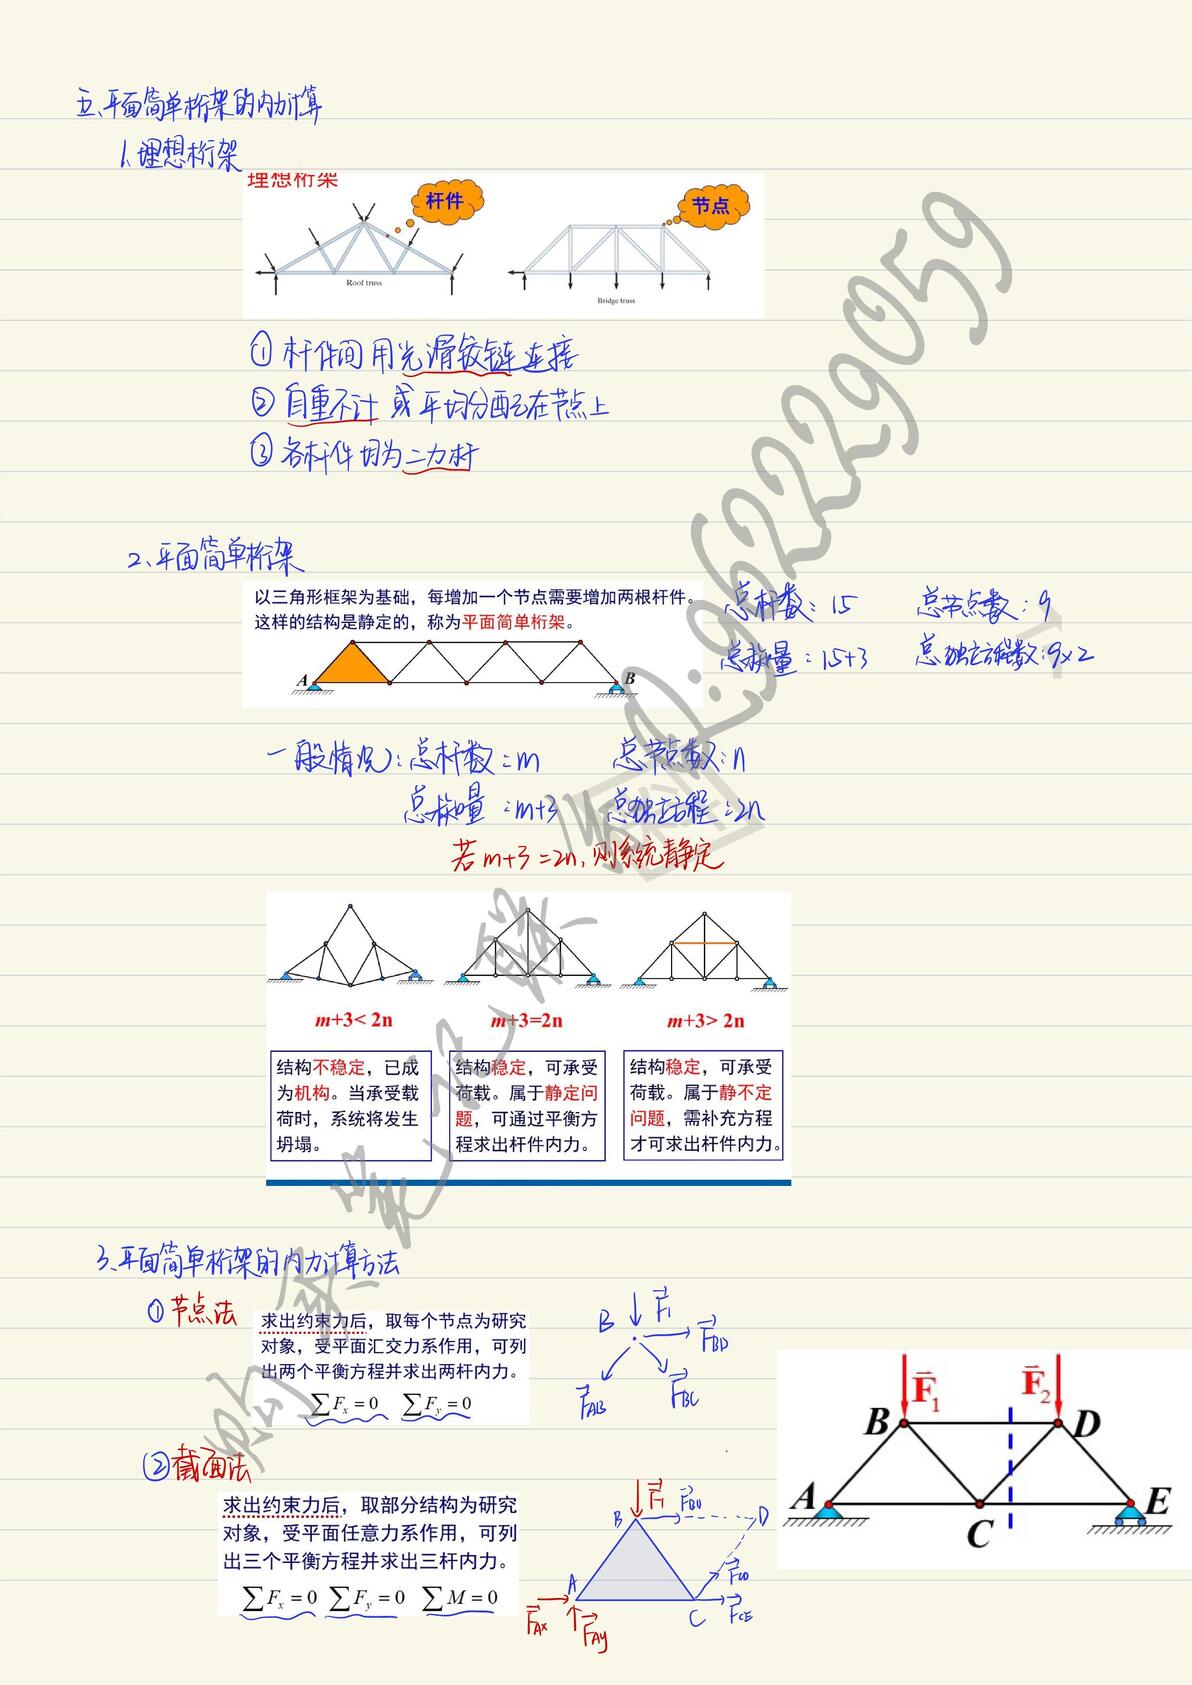 五、平面简单桁架的内力计算
1、理想桁架
理想桁架
杆件
节点
Roof truss
Bridge truss
① 杆件间用光滑铰链连接
② 自重不计 或平均分配在节点上
③ 各杆件均为二力杆
2、平面简单桁架
以三角形框架为基础，每增加一个节点需要增加两根杆件。
这样的结构是静定的，称为平面简单桁架。
A
B
总杆数：15 总节点数：9
总未知量：15+3 总独立方程数：9×2
一般情况：总杆数：m 总节点数：n
总未知量：m+3 总独立方程：2n
若m+3=2n，则系统静定
m+3< 2n
m+3=2n
m+3> 2n
结构不稳定，已成
为机构。当承受载
荷时，系统将发生
坍塌。
结构稳定，可承受
荷载。属于静定问
题，可通过平衡方
程求出杆件内力。
结构稳定，可承受
荷载。属于静不定
问题，需补充方程
才可求出杆件内力。
3、平面简单桁架的内力计算方法
① 节点法
求出约束力后，取每个节点为研究
对象，受平面汇交力系作用，可列
出两个平衡方程并求出两杆内力。
∑Fx = 0 ∑Fy = 0
B F1 FBD
FAB FBC
F1 F2
B D
A E
C
② 截面法
求出约束力后，取部分结构为研究
对象，受平面任意力系作用，可列
出三个平衡方程并求出三杆内力。
∑Fx = 0 ∑Fy = 0 ∑M = 0
F1 FBD
B D
A FCD
C FCE
FAx FAy